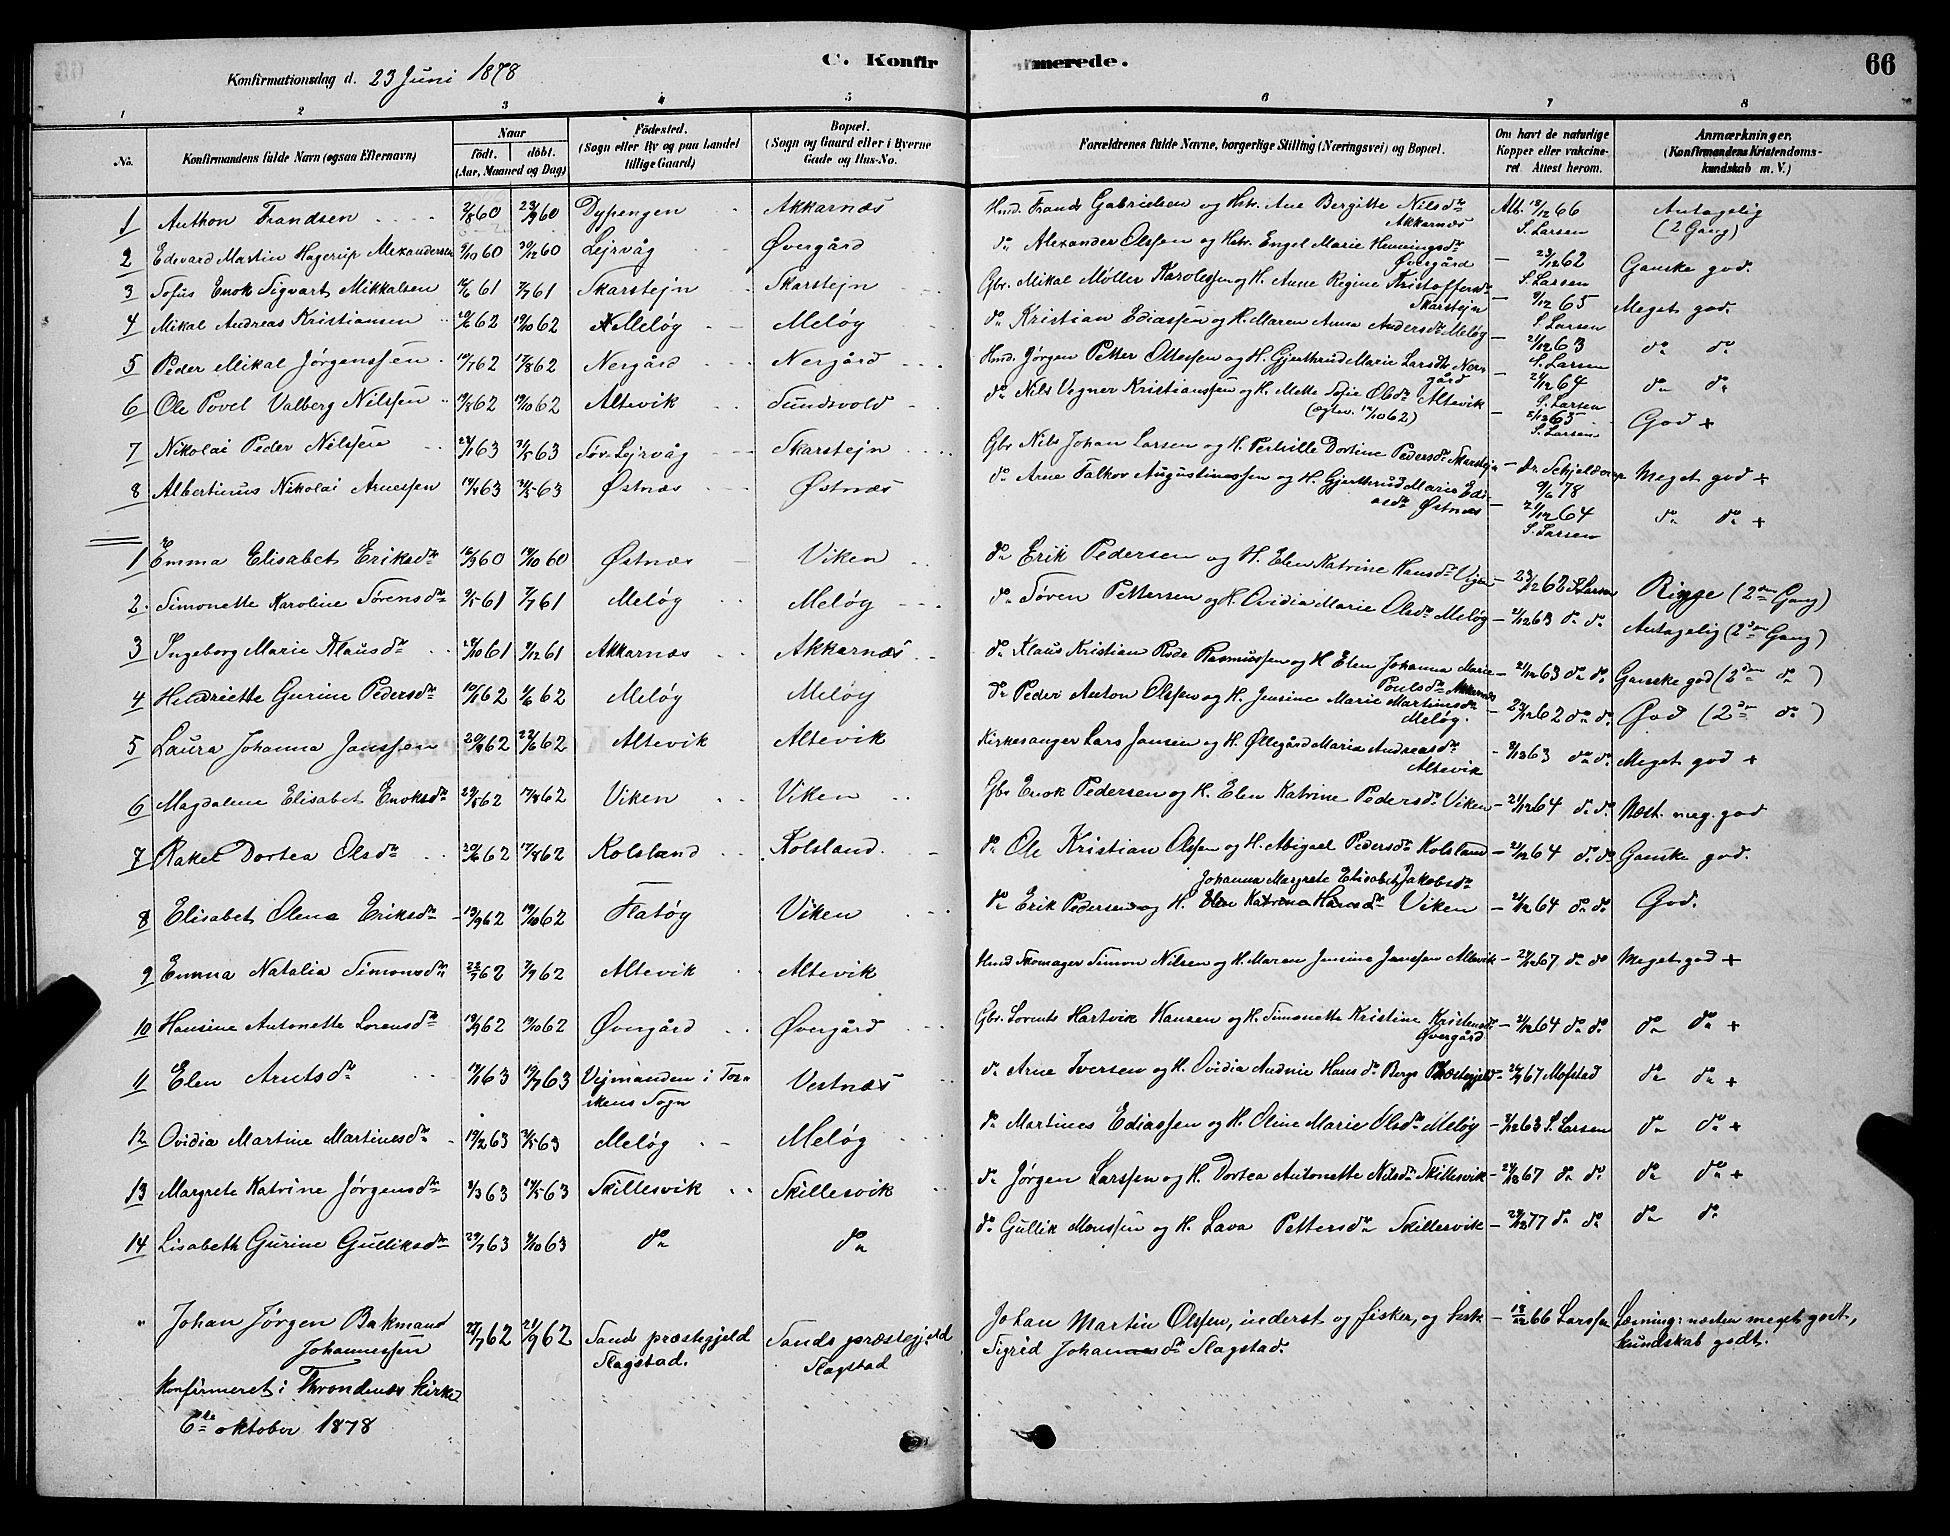 Konfirmationsdag d. 23 Juni 1878
C. Konfirmerede.
66
1 2 3 4 5 6 7 8
No.
Konfirmandens fulde Navn (ogsaa Efternavn)
Naar
født. døbt.
(Aar, Maaned og Dag)
Födested.
(Sogn eller By og paa Landet tillige Gaard)
Bopæl.
(Sogn og Gaard eller i Byerne Gade og Hus-No.
Forældrenes fulde Navne, borgerlige Stilling (Næringsvei) og Bopæl.
Om havt de naturlige Kopper eller vakcineret. Attest herom.
Anmærkninger.
(Konfirmandens Kristendomskundskab m. V.)
1 Anthon Frandsen 2/8 60 23/9 60 Dypengen Akkarnæs Hmd. Frands Gabrielsen og Hstr. Ane Bergitte Nilsdr Akkarnæs Att. 18/12 66 S. Larsen Antagelig (2 Gang)
2 Edevard Martin Hagerup Alexandersen 9/10 60 30/12 60 Lejrvåg Øvergård do Alexander Olsen og Hstr. Engel Marie Henningsdr Øvergård - 23/12 62 S. Larsen Ganske god.
3 Tofus Enok Sigvart Mikkalsen 12/6 61 7/7 61 Skarstejn Skarstejn Gbr. Mikal Møller Karolessen og H. Anne Regine Kristoffersdr Skarstejn - 9/12 65 S. Larsen Meget god.
4 Mikal Andreas Kristiansen 20/6 62 19/10 62 Meløg Meløg do Kristian Ediassen og H. Maren Anna Andersdr Meløg - 21/12 63 S. Larsen do do
5 Peder Mikal Jørgenssen 10/7 62 17/8 62 Nergård Nergård Hmd. Jørgen Petter Ottessen og H. Gjerthrud Marie Larsdtr Nergård - 21/12 64 S. Larsen do do
6 Ole Povel Valberg Nilssen 19/8 62 19/10 62 Altevik Sundsvold do Nils Vegner Kristianssen og H. Mette Sofie Olsdr Altevik (ægtev. 14/10 62) - 5/12 63 S. Larsen God +
7 Nikolai Peder Nilssen 24/1 63 31/5 63 Sør-Lejrvåg Skarstejn Gbr Nils Johan Larsen og H. Pernille Dortine Pedersdr Skarstejn - Dr. Schjelderup 9/6 78 Meget god +
8 Albertinus Nikolai Arnessen 14/4 63 31/5 63 Østnæs Østnæs do Arne Falkor Augustinussen og H. Gjerthrud Marie Ediasdr Østnæs - 21/12 64 S. Larsen do do +
1 Emma Elisabet Eriksdr 16/9 60 14/10 60 Østnæs Viken do Erik Pedersen og H. Elen Katrine Hansdr Vigen - 23/12 62 S. Larsen Ringe (2den Gang)
2. Simonette Karoline Sørensdr 9/5 61 7/7 61 Meløg Meløg do Søren Pettersen og H. Ovidia Marie Olsdr Meløg - 21/12 63 do do Antagelig (2den Gang)
3 Ingeborg Marie Klausdr 28/10 61 9/12 61 Akkarnæs Akkarnæs do Klaus Kristian Rode Rasmussen og H Elen Johanna Marie Poulsdr Akkarnæs - 21/12 63 do do Ganske god (2den do)
4 Hendriette Gurine Pedersdr 10/1 62 9/6 62 Meløg Meløg do Peder Anton Olssen og H. Jensine Marie Martinusdr Meløg. - 23/12 62 do do. God (2den do)
5 Laura Johanna Janssen 20/4 62 22/6 62 Altevik Altevik Kirkesanger Lars Jansen og H. Øllegård Maria Andreasdr Altevik - 9/12 63 do do. Meget god +
6 Magdalene Elisabet Enoksdr 29/5 62 17/8 62 Viken Viken Gbr Enok Pedersen og H. Elen Katrine Pedersdr Viken - 21/12 64 do do. Næst. meg. god
7 Rakel Dortea Olsdr 20/6 62 17/8 62 Kolsland Kolsland. do Ole Kristian Olssen og H. Abigael Pedersdr Kolsland - 21/12 64 do do Ganske god.
8 Elisabet Olena Eriksdr 13/9 62 19/10 62 Flatøg Viken do Erik Pedersen og H. Elen Katrine Hansdr Johanna Margrete Elisabet Jakobsdr Viken - 21/12 64 do do God.
9 Emma Natalia Simonsdr 22/7 62 7/9 62 Altevik Altevik Hmd Skomager Simon Nilsen og H. Maren Jensine Janssen Altevik - 24/12 67 do do Meget god +
10 Hansine Antonette Lorensdr 19/9 62 19/10 62 Øvergård Øvergård Gbr. Lorents Hartvik Hansen og H. Simonette Kristine Kristensdr Øvergård - 21/12 64 do do do do +
11 Elen Arntsdr 19/1 63 19/7 63 Vejmanden i Torskens Sogn Vestnæs do Arne Iversen og H. Ovidia Andrine Hansdr Bergs Præstegjeld - 24/9 67 Mofstad do do +
12 Ovidia Martine Martinesdr 19/2 63 31/5 63 Meløg Meløg do Martines Ediassen og H. Oline Marie Olsdr Meløg - 21/12 63 S. Larsen do do +
13 Margrete Katrine Jørgensdr 9/3 63 14/5 63 Skillesvik Skillesvik do Jørgen Larssen og H. Dortea Antonette Nilsdr Skillesvik - 24/12 67 do do do do +
14 Lisabeth Gurine Gulliksdr 29/7 63 9/10 63 do do do Gullik Monssen og H. Lava Pettersdr Skillesvik - 24/12 77 do do do do
" Johan Jørgen Bakmand Johannessen 22/7 62 21/9 62 Sand præstegjeld Slagstad. Sands præstegjeld Slagstad Johan Martin Olssen, inderst og fisker, og hstr Sigrid Johannesdr Slagstad. - 18/12 66 Larssen Læsning: næsten meget godt, kundskab godt.
konfirmeret i Throndenæs kirke
6te oktober 1878